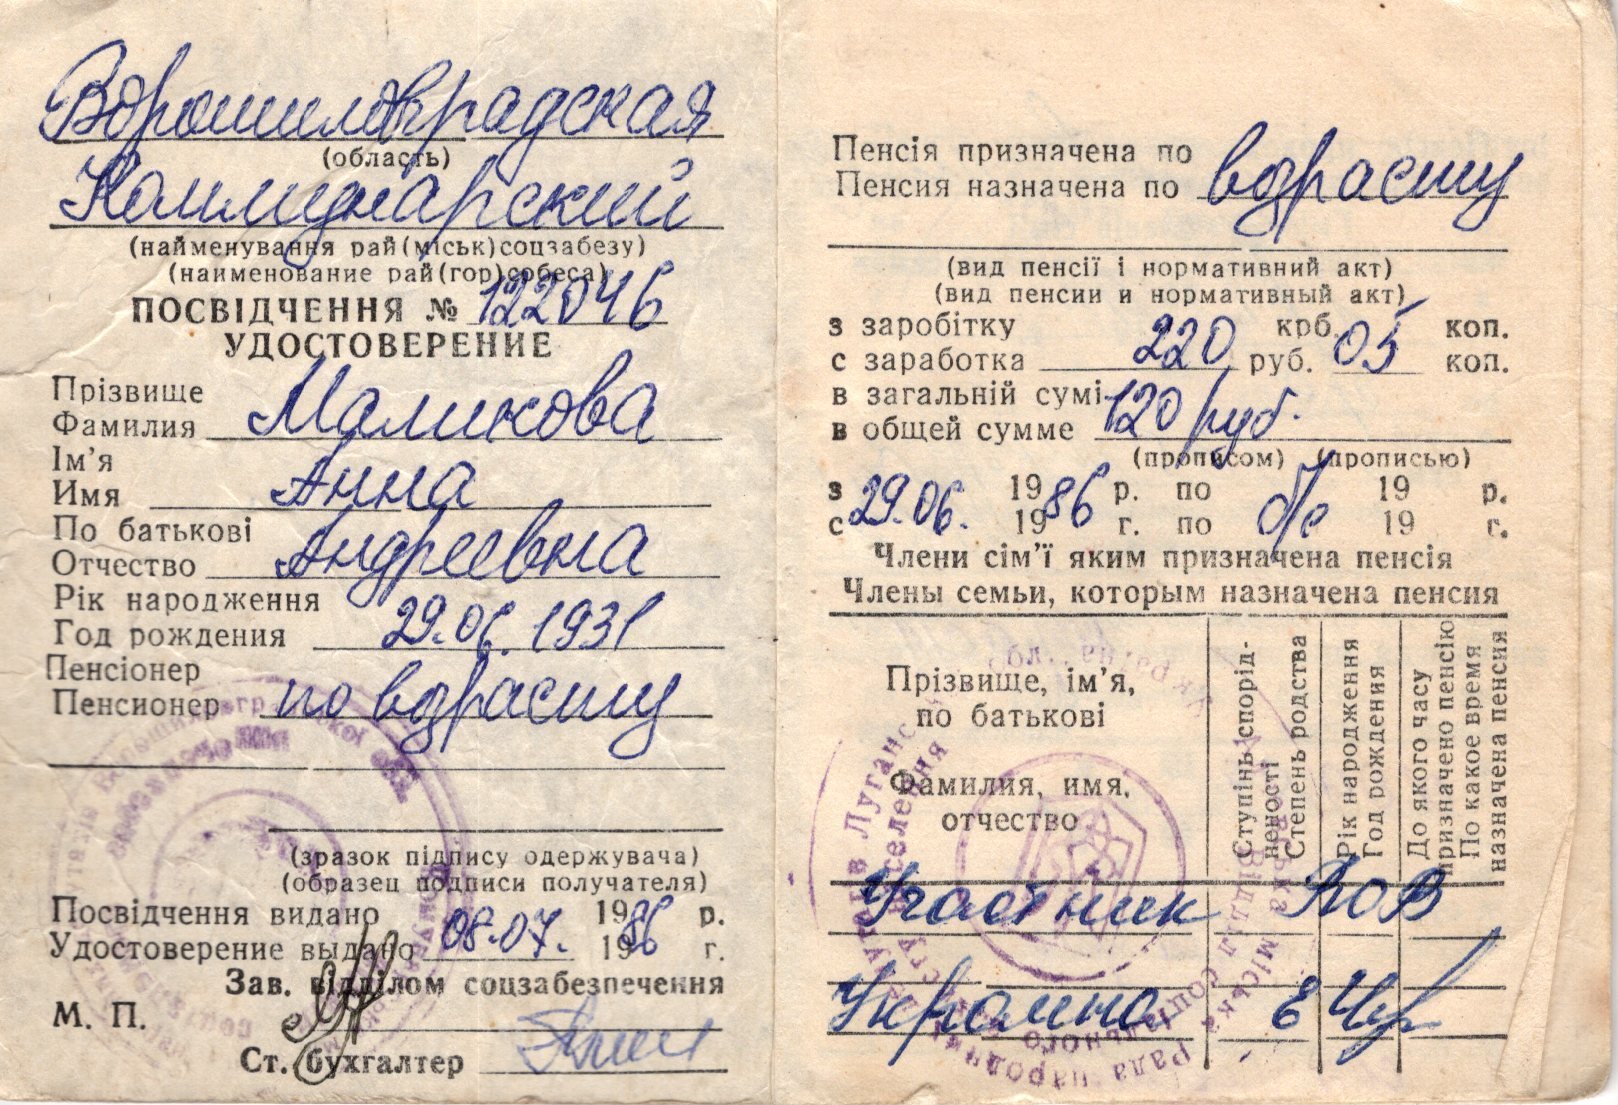 Ворошиловградская
(область)
Коммунарский
(найменування рай(міськ)соцзабезу)
(наименование рай(гор)собеса)
ПОСВІДЧЕННЯ № 122046
УДОСТОВЕРЕНИЕ
Прізвище
Фамилия Маликова
Ім'я
Имя Анна
По батькові
Отчество Андреевна
Рік народження
Год рождения 29.06.1931
Пенсіонер
Пенсионер по возрасту
(зразок підпису одержувача)
(образец подписи получателя)
Посвідчення видано 1986 р.
Удостоверение выдано 08.07. 1986 г.
Зав. відділом соцзабезпечення
М. П.
Ст. бухгалтер
Пенсія призначена по
Пенсия назначена по возрасту
(вид пенсії і нормативний акт)
(вид пенсии и нормативный акт)
з заробітку 220 крб. 05 коп.
с заработка руб. коп.
в загальній сумі
в общей сумме 120 руб.
(прописом) (прописью)
з 29.06. 1986 р. по б/с 19 р.
с 19 г. по 19 г.
Члени сім'ї яким призначена пенсія
Члены семьи, которым назначена пенсия
Прізвище, ім'я,
по батькові
Фамилия, имя,
отчество
Ступінь спорід-
неності
Степень родства
Рік народження
Год рождения
До якого часу
призначено пенсію
По какое время
назначена пенсия
Участник ВОВ